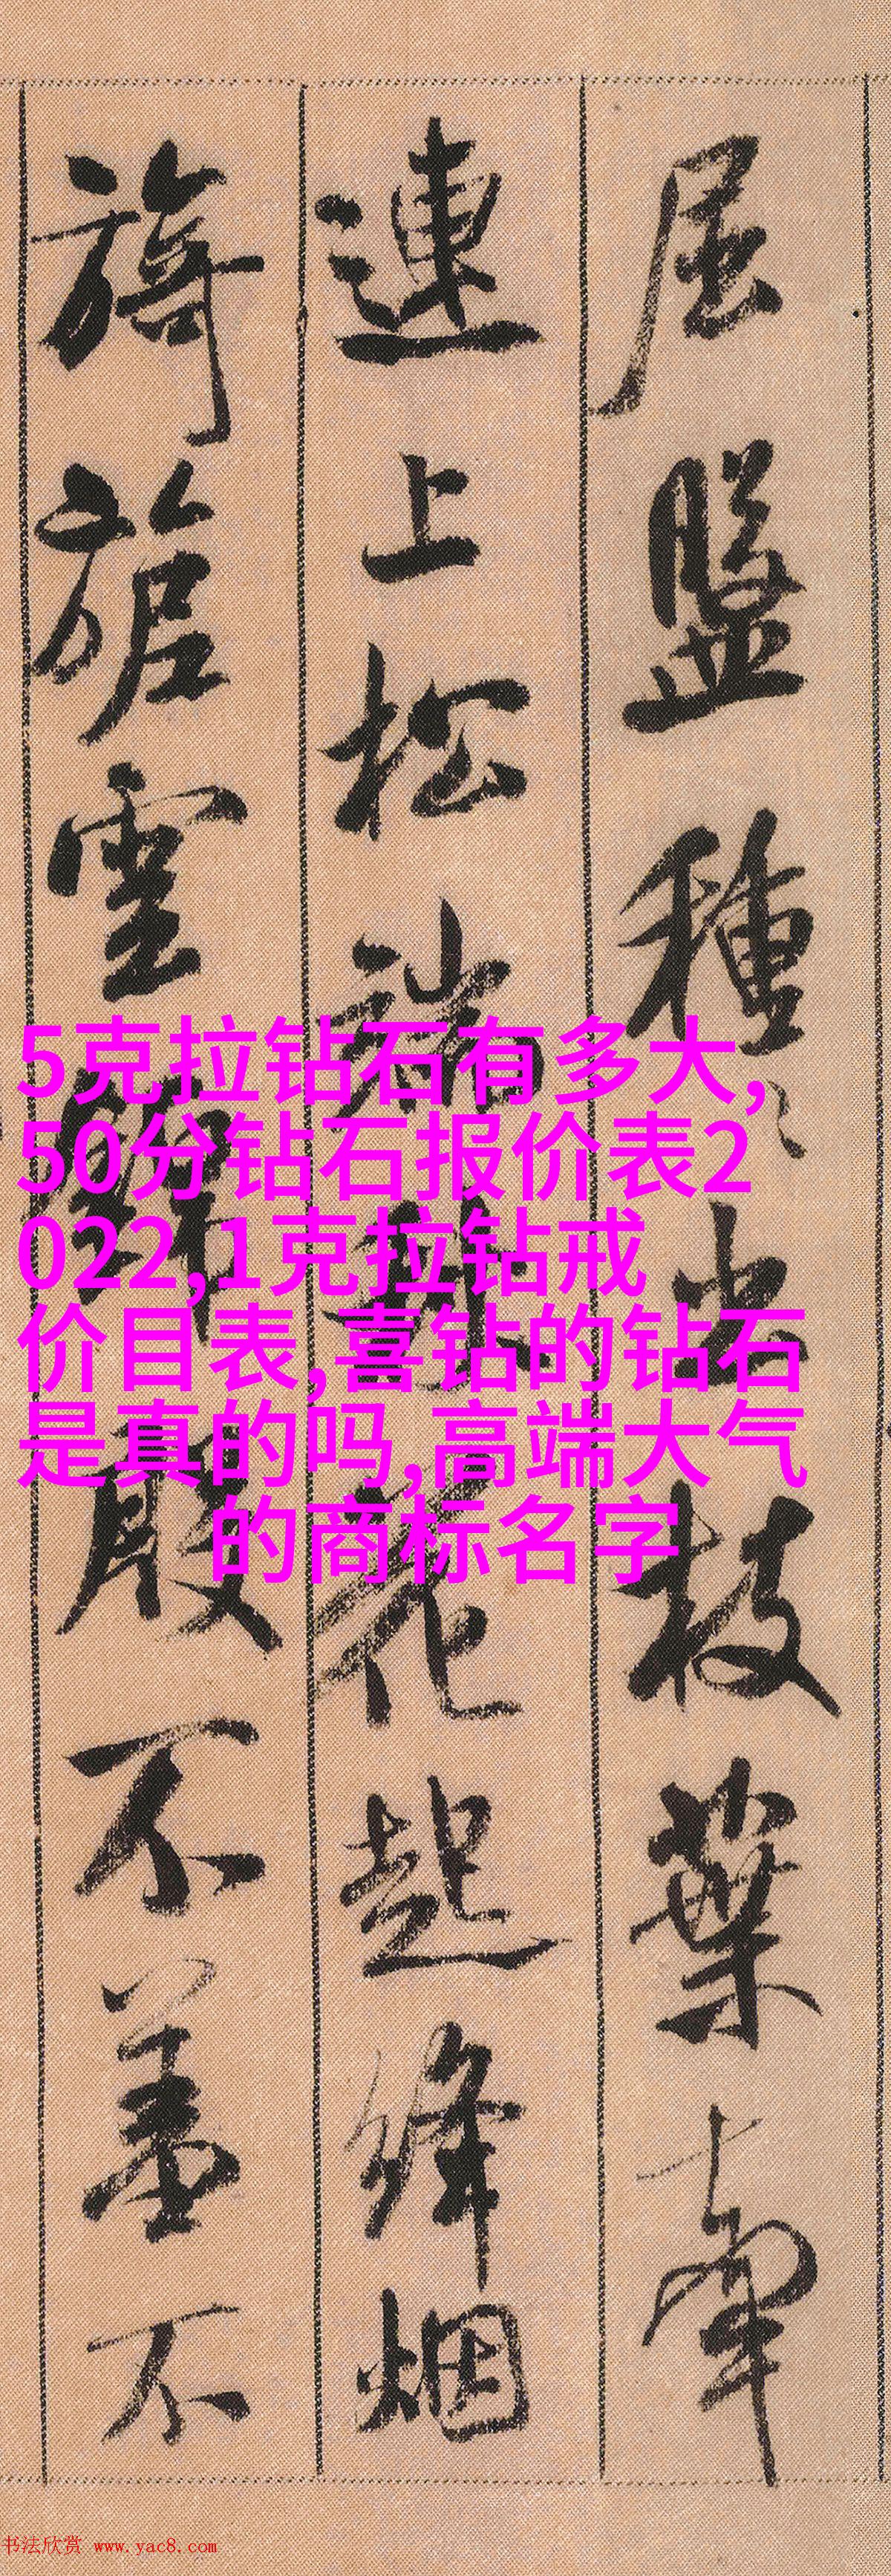 屈盤種〻出枝葉牽
連上松端秋花起絳烟
旖旎雲錦殷不羞不
5克拉钻石有多大,
50分钻石报价表2
022,1克拉钻戒
价目表,喜钻的钻石
是真的吗,高端大气
的商标名字
书法欣赏 www.yac8.com